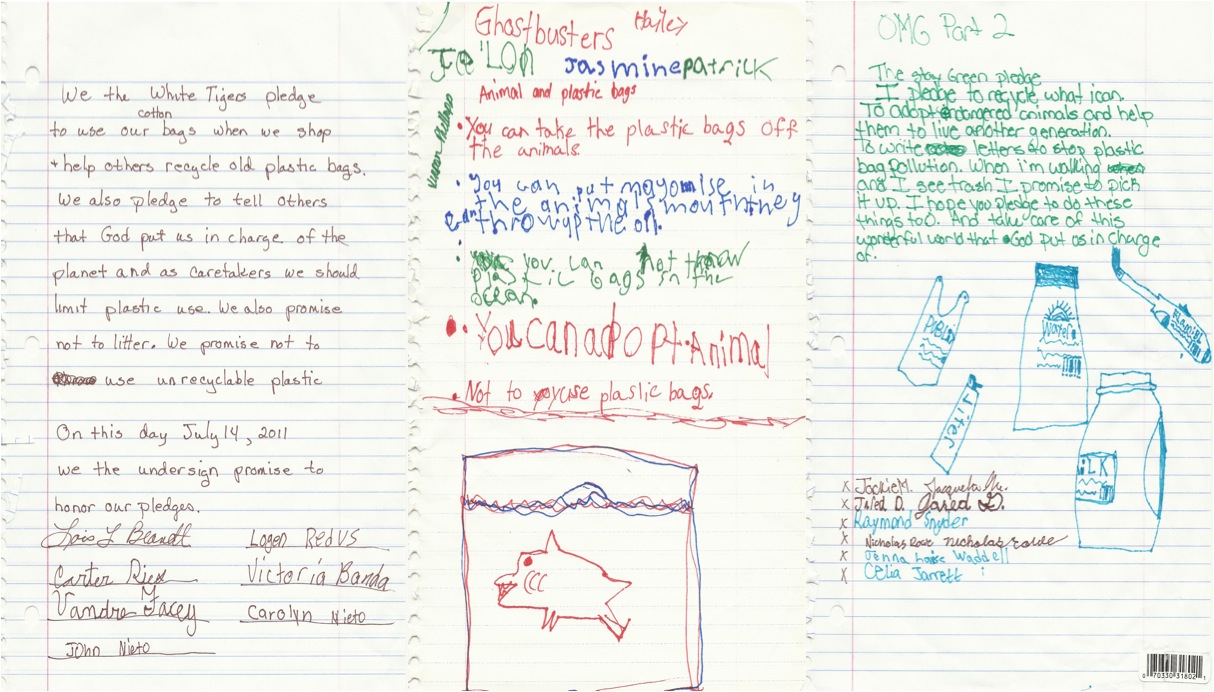 We the White Tigers pledge
cotton
to use our bags when we shop
+ help others recycle old plastic bags.
We also pledge to tell others
that God put us in charge of the
planet and as caretakers we should
limit plastic use. We also promise
not to litter. We promise not to
use unrecyclable plastic
On this day July 14, 2011
we the undersign promise to
honor our pledges.
Lois L
Logan Redus
Carter
Victoria Banda
Carolyn Nieto
John Nieto
Ghostbusters Hailey
Jasmine Patrick
Animal and plastic bags
• You can take the plastic bags off
the animals.
• You can put mayonise in
the animals mouth they
can throwup the oil.
• you can not throw
plastic bags in the
ocean.
• You can adopt Animal
• Not to use plaslic bags.
OMG Part 2
The stay Green pledge
I pledge to recycle what ican.
To adopt endangered animals and help
them to live another generation.
To write letters to stop plastic
bag pollution. When i'm walking
and I see trash I promise to pick
it up. I hope you pledge to do these
things too. And take care of this
wonderful world that God put us in charge
of.
Publix
Water
Liter
x Jackie M.
x Jared D. Jared D.
x Raymond Snyder
x Nicholas Rowe nicholas rowe
x Jenna Waddell
x Celia Jarrett
0 70330 31802 1